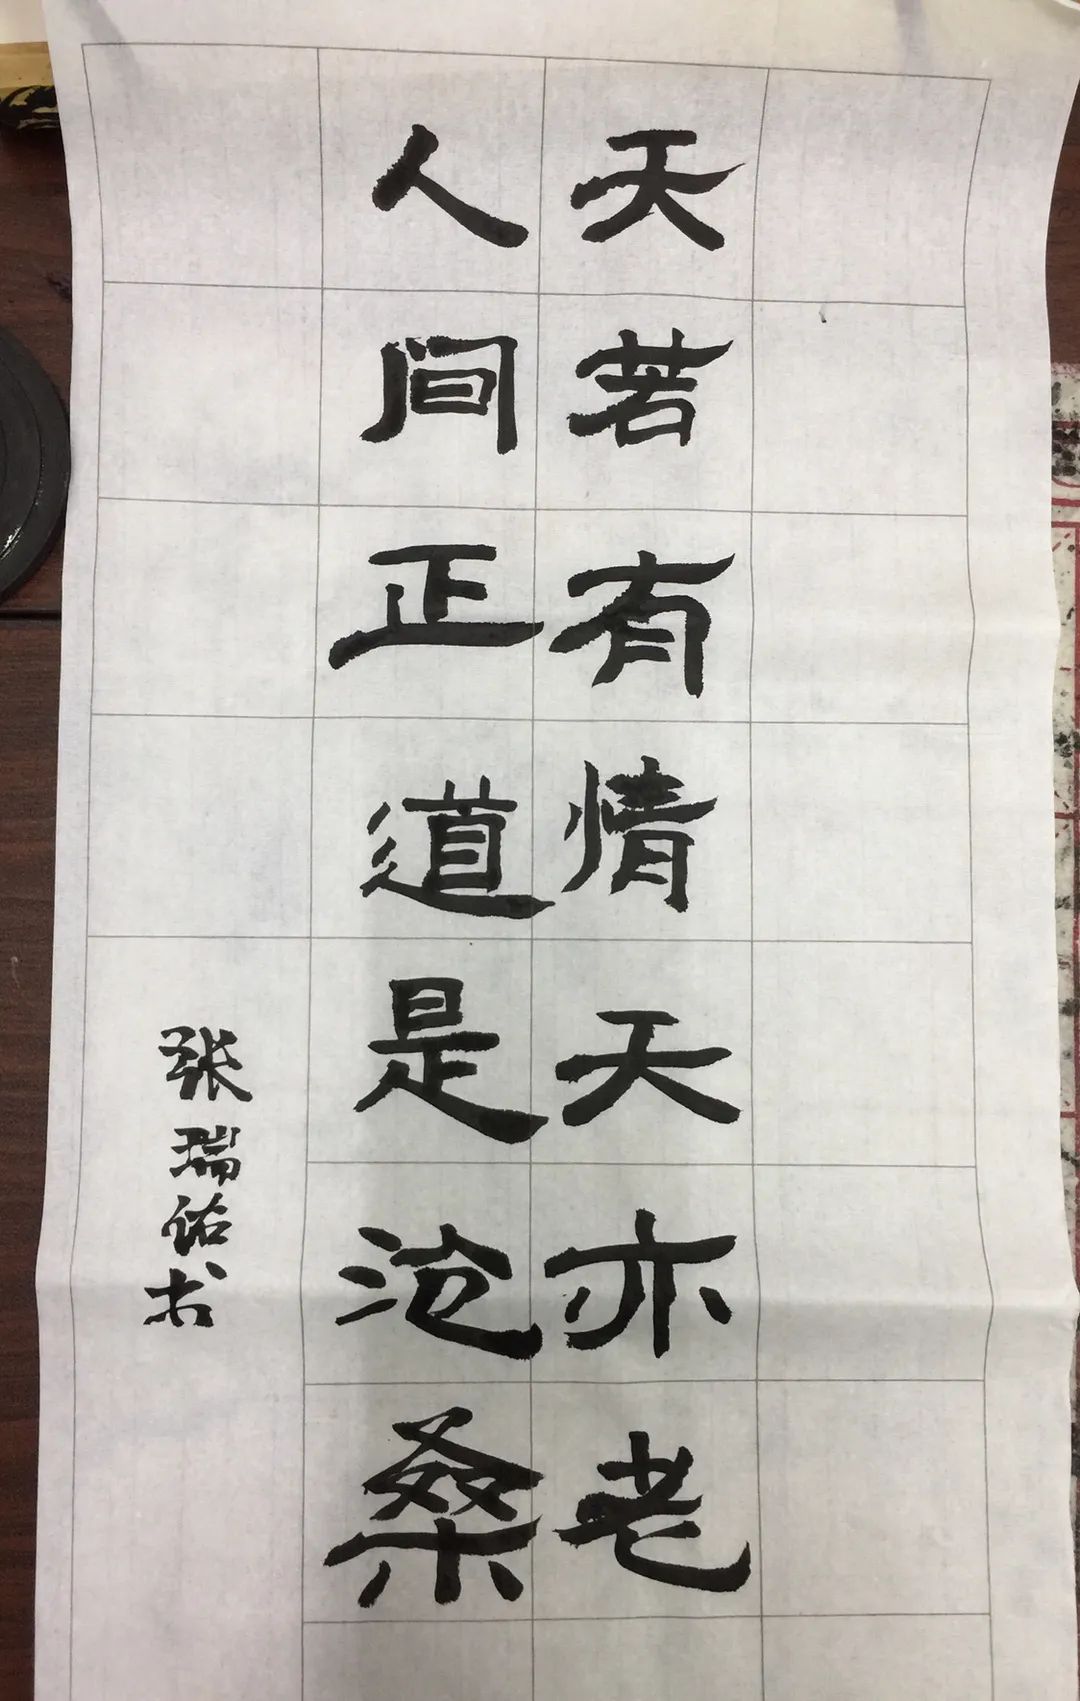 天若有情天亦老
人间正道是沧桑
张瑞佑书